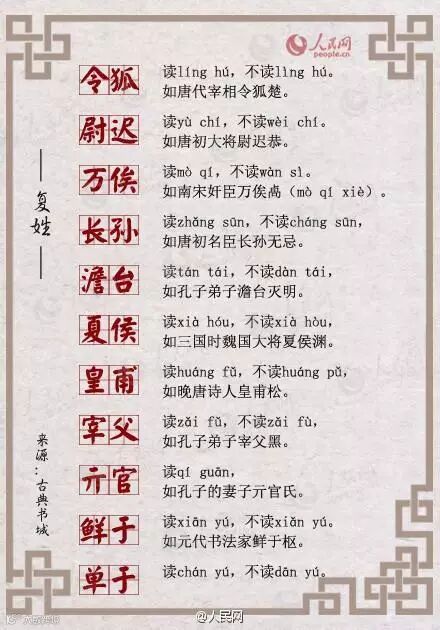 人民网
people.cn
复姓
令狐
读líng hú，不读lìng hú。
如唐代宰相令狐楚。
尉迟
读yù chí，不读wèi chí。
如唐初大将尉迟恭。
万俟
读mò qí，不读wàn sì。
如南宋奸臣万俟卨（mò qí xiè）。
长孙
读zhǎng sūn，不读cháng sūn，
如唐初名臣长孙无忌。
澹台
读tán tái，不读dàn tái，
如孔子弟子澹台灭明。
夏侯
读xià hóu，不读xià hòu，
如三国时魏国大将夏侯渊。
皇甫
读huáng fǔ，不读huáng pǔ，
如晚唐诗人皇甫松。
宰父
读zǎi fǔ，不读zǎi fù，
如孔子弟子宰父黑。
亓官
读qí guān，
如孔子的妻子亓官氏。
鲜于
读xiān yú，不读xiǎn yú。
如元代书法家鲜于枢。
单于
读chán yú，不读dān yú。
来源：古典书城
@人民网